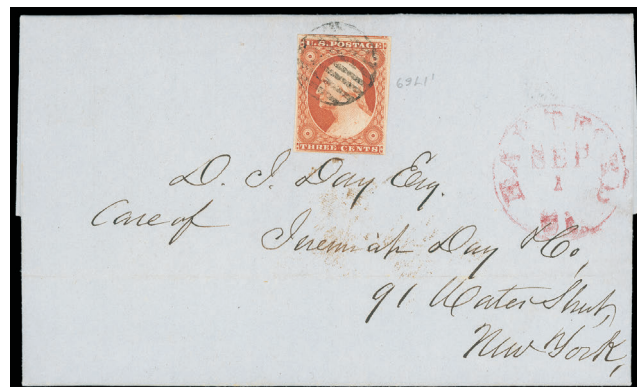 U.S. POSTAGE
THREE CENTS
69L1'
HARTFORD
SEP
1
D. J. Day Esq.
Care of
Jeremiah Day & Co,
91 Water Street,
New York,